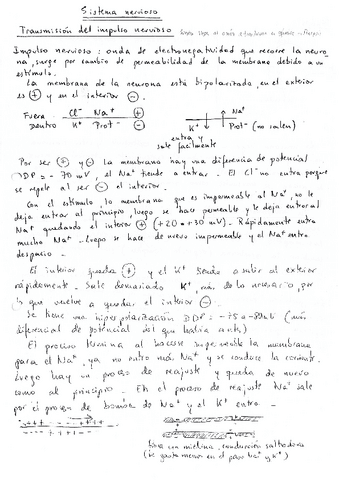 Sistema nervioso
Transmisión del impulso nervioso
Impulso nervioso: onda de electronegatividad que recorre la neuro-
na, surge por cambio de permeabilidad de la membrana debido a un
estímulo.
La membrana de la neurona está bipolarizada, en el exterior
es (+) y en el interior (-).
Fuera Cl⁻ Na⁺ (+) Na⁺
Dentro K⁺ Prot⁻ (-) K⁺ Prot⁻ (no salen)
entra y
sale facilmente
Por ser (+) y (-) la membrana hay una diferencia de potencial
DDP = -70 mV, el Na⁺ tiende a entrar. El Cl⁻ no entra porque
se repele al ser (-) el interior.
Con el estímulo, la membrana que es impermeable al Na⁺, no le
deja entrar al principio, luego se hace permeable y le deja entrar al
Na⁺ quedando el interior (+) (+20 a +30 mV). Rápidamente entra
mucho Na⁺. Luego se hace de nuevo impermeable y el Na⁺ entra
despacio.
El interior queda (+) y el K⁺ tiende a salir al exterior
rápidamente. Sale demasiado K⁺, más de lo necesario, por
lo que vuelve a quedar el interior (-).
Se tiene una hiperpolarización DDP: -75 a -80 mV (más
diferencial de potencial del que había antes)
El proceso termina al hacerse impermeable la membrana
para el Na⁺, ya no entra más Na⁺ y se conduce la corriente.
Luego hay un proceso de reajuste y queda de nuevo
como al principio. En el proceso de reajuste Na⁺ sale
por el proceso de bomba de Na⁺ y el K⁺ entra.
fibra con mielina, conducción saltadora
(se gasta menos en el paso Na⁺ y K⁺)